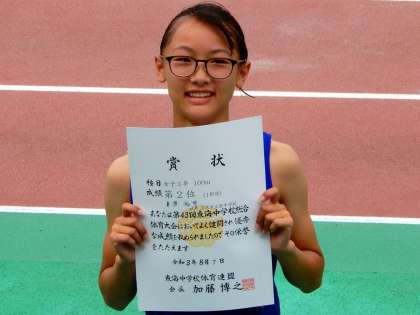 賞状
種目 女子三年 100m
成績 第2位
あなたは第43回東海中学校総合
体育大会においてよく健闘され優秀
な成績を収められましたので その栄誉
をたたえます
令和3年8月7日
東海中学校体育連盟
会長 加藤 博之